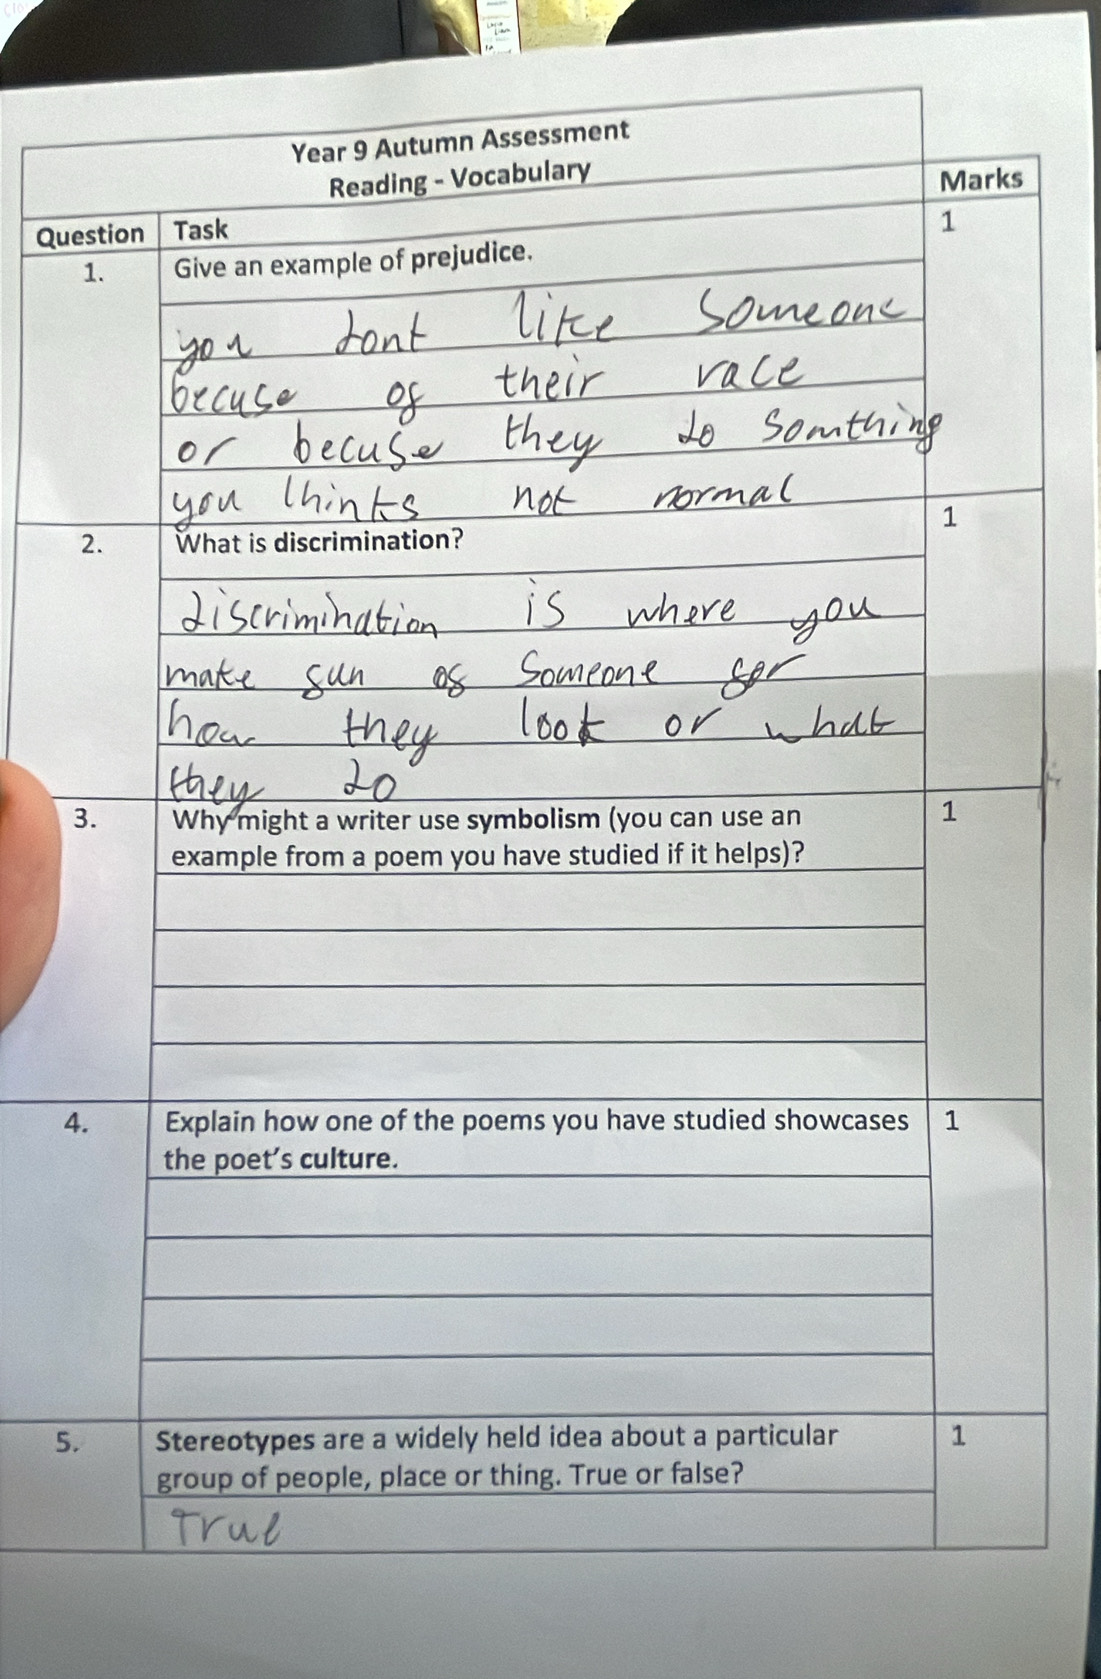 Year 9 Autumn Assessment
Reading - Vocabulary
Marks
Question Task
1
1. Give an example of prejudice.
you dont like someone
becuse of their race
or becuse they do somthing
you thinks not normal
1
2. What is discrimination?
discrimination is where you
make fun of someone for
how they look or what
they do
3. Why might a writer use symbolism (you can use an
1
example from a poem you have studied if it helps)?
4. Explain how one of the poems you have studied showcases
1
the poet's culture.
5. Stereotypes are a widely held idea about a particular
1
group of people, place or thing. True or false?
True